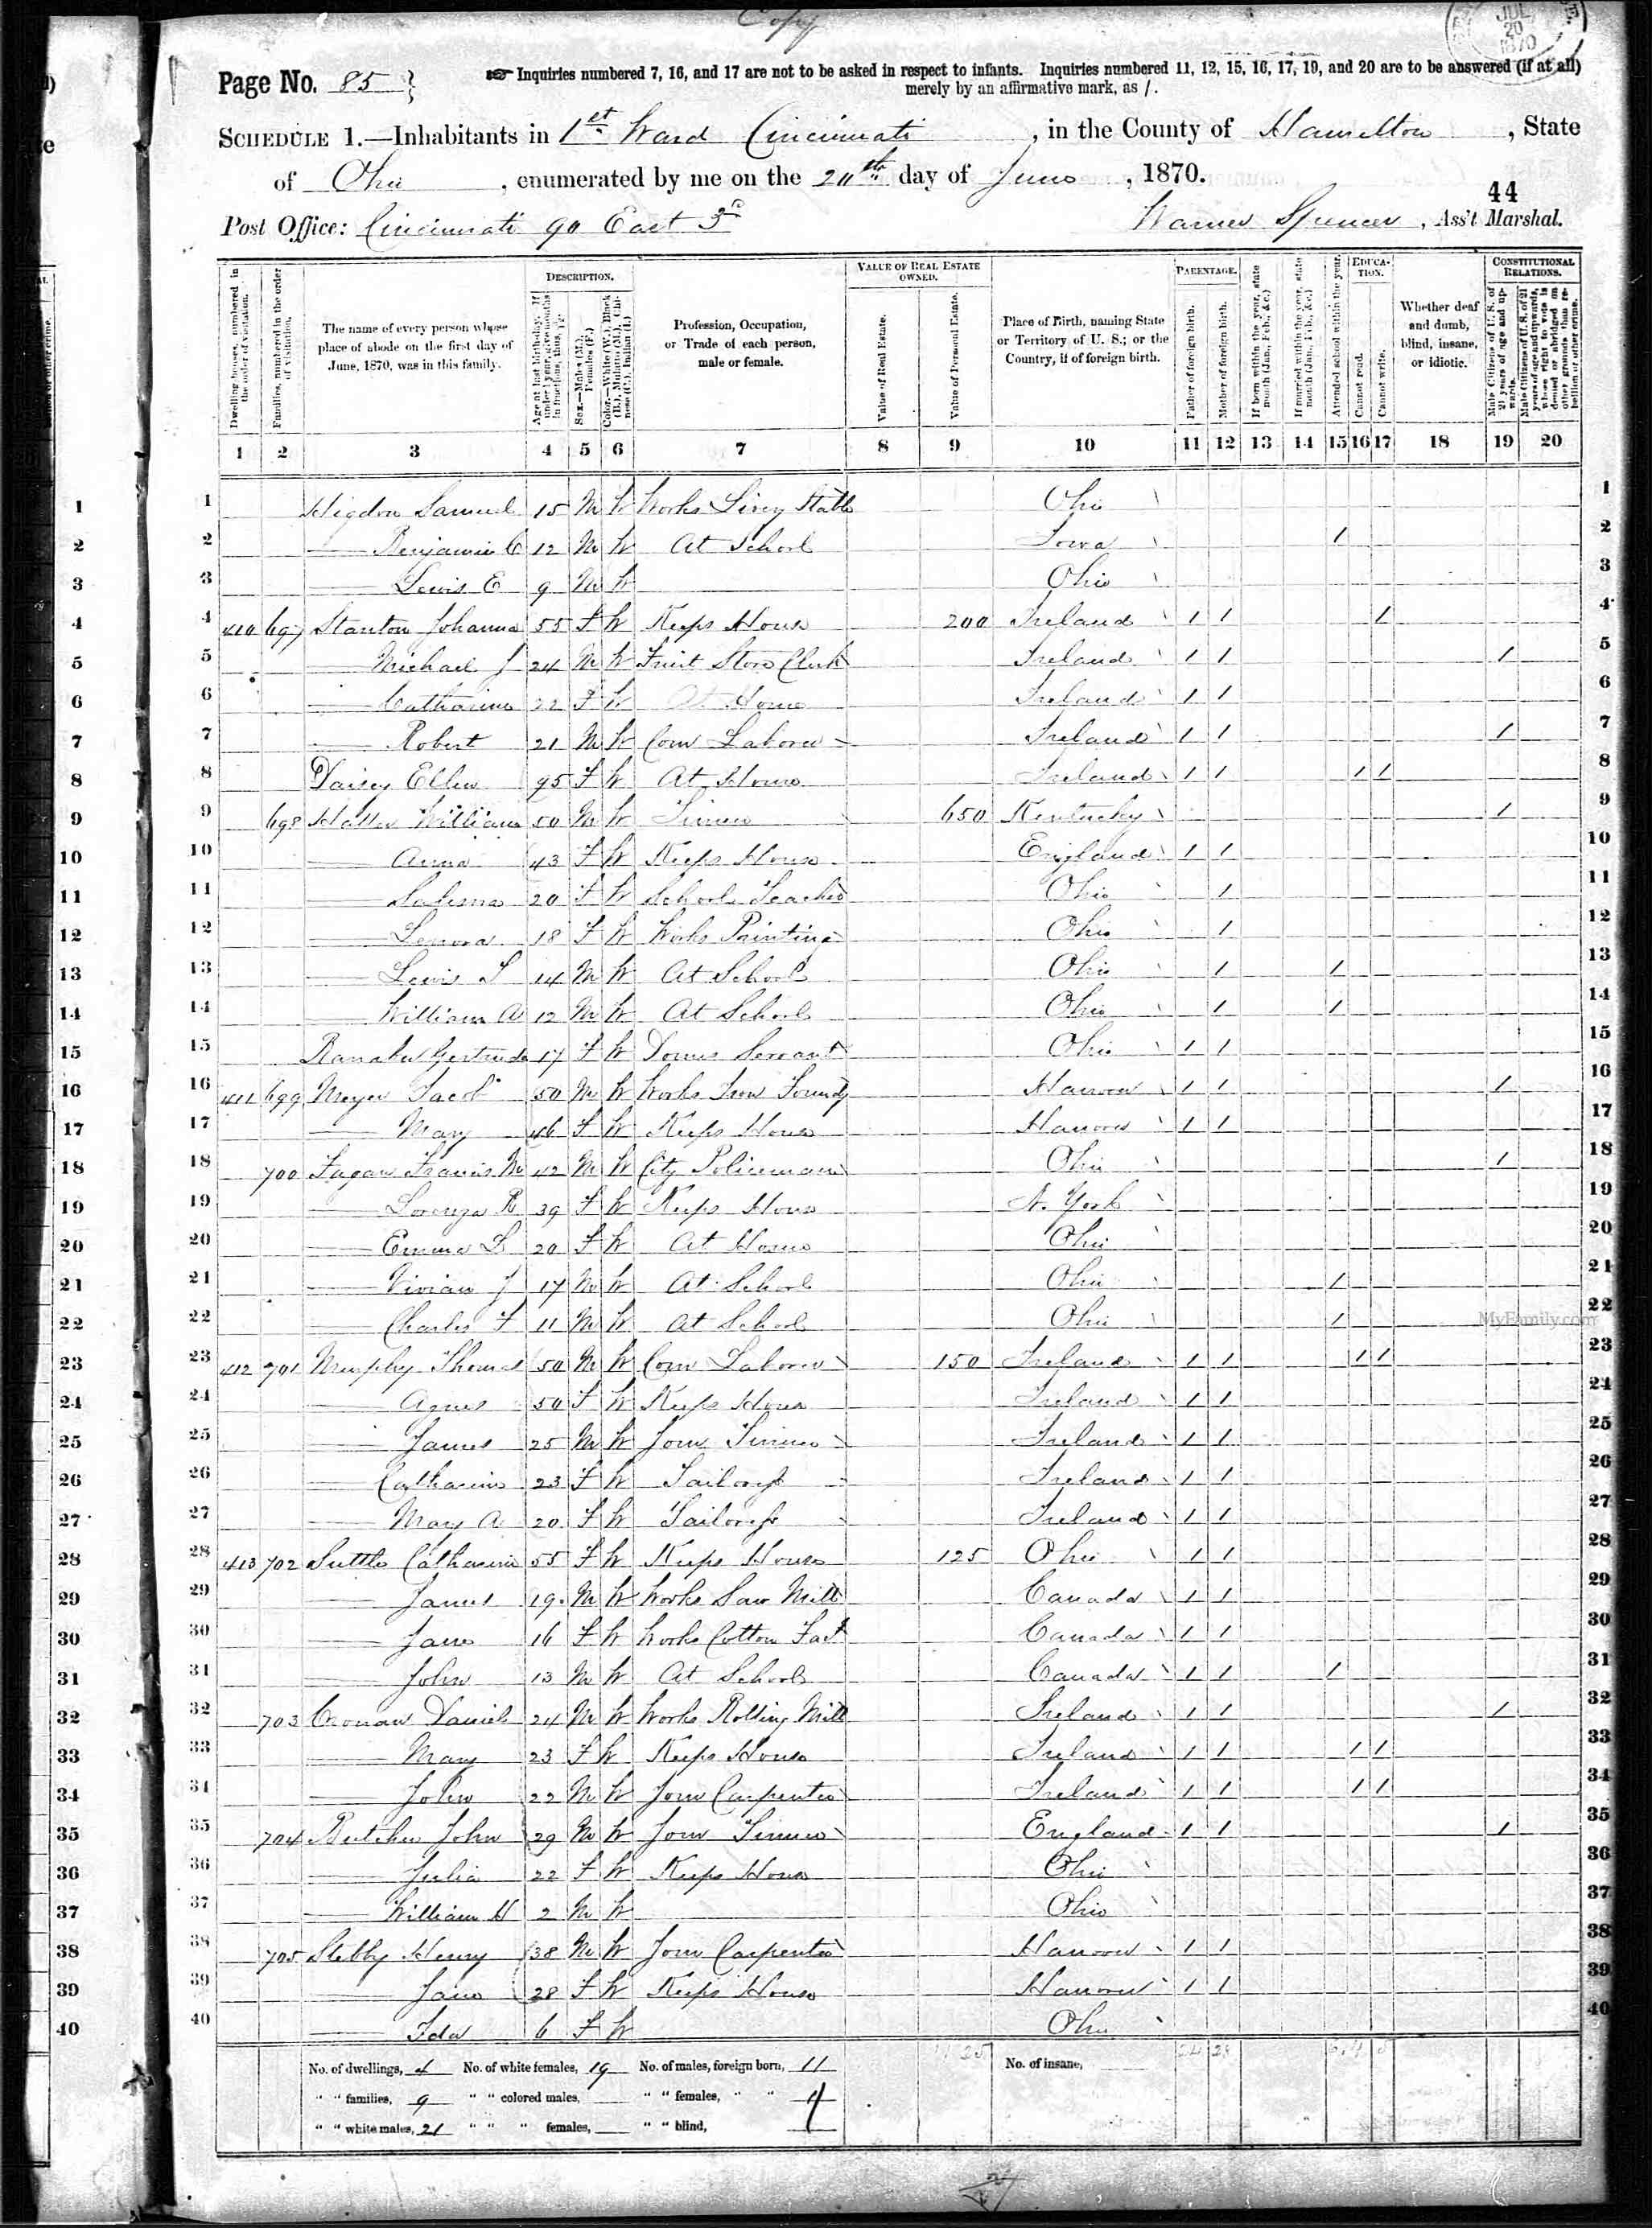 Copy
JUL 20 1870
Page No. 85
Inquiries numbered 7, 16, and 17 are not to be asked in respect to infants. Inquiries numbered 11, 12, 15, 16, 17, 19, and 20 are to be answered (if at all) merely by an affirmative mark, as /.
SCHEDULE 1.—Inhabitants in 1st Ward Cincinnati, in the County of Hamilton, State
of Ohio, enumerated by me on the 20th day of June, 1870.
44
Post Office: Cincinnati 90 East 3d Warner Spencer, Ass't Marshal.
Dwelling-houses, numbered in the order of visitation.
Families, numbered in the order of visitation.
The name of every person whose place of abode on the first day of June, 1870, was in this family.
DESCRIPTION.
Age at last birth-day. If under 1 year, give months in fractions, thus, 3/12
Sex.—Males (M.), Females (F.)
Color.—White (W.), Black (B.), Mulatto (M.), Chinese (C.), Indian (I.)
Profession, Occupation, or Trade of each person, male or female.
VALUE OF REAL ESTATE OWNED.
Value of Real Estate.
Value of Personal Estate.
Place of Birth, naming State or Territory of U. S.; or the Country, if of foreign birth.
PARENTAGE.
Father of foreign birth.
Mother of foreign birth.
If born within the year, state month (Jan., Feb., &c.)
If married within the year, state month (Jan., Feb., &c.)
Attended school within the year.
EDUCATION.
Cannot read.
Cannot write.
Whether deaf and dumb, blind, insane, or idiotic.
CONSTITUTIONAL RELATIONS.
Male Citizens of U. S. of 21 years of age and upwards.
Male Citizens of U. S. of 21 years of age and upwards, whose right to vote is denied or abridged on other grounds than rebellion or other crime.
1 2 3 4 5 6 7 8 9 10 11 12 13 14 15 16 17 18 19 20
1 Higdon Samuel 15 M W Works Livery Stable Ohio 1
2 — Benjamin C 12 M W At School Iowa / 2
3 — Lewis E 9 M W Ohio 3
4 410 697 Stanton Johanna 55 F W Keeps House 200 Ireland / / / 4
5 — Michael J 24 M W Fruit Store Clerk Ireland / / / 5
6 — Catharine 22 F W At Home Ireland / / 6
7 — Robert 21 M W Com Laborer Ireland / / / 7
8 Ellen 95 F W At Home Ireland / / / / 8
9 698 William 50 M W Tinner 650 Kentucky / 9
10 — Anna 43 F W Keeps House England / / 10
11 — 20 F W School Teacher Ohio / 11
12 — Lenora 18 F W Works Printing Ohio / 12
13 — Lewis 14 M W At School Ohio / / 13
14 — William A 12 M W At School Ohio / / 14
15 Gertrude 17 F W Domes Servant Ohio / / 15
16 411 699 Meyer Jacob 50 M W Works Iron Foundy Hanover / / / 16
17 — Mary 46 F W Keeps House Hanover / / 17
18 700 Fagan Francis M 42 M W City Policeman Ohio / 18
19 — R 39 F W Keeps House N. York 19
20 — Emma L 20 F W At Home Ohio 20
21 — Vivian J 17 M W At School Ohio / 21
22 — Charles F 11 M W At School Ohio / 22
MyFamily.com
23 412 701 Murphy Thomas 50 M W Com Laborer 150 Ireland / / / / 23
24 — Agnes 50 F W Keeps House Ireland / / 24
25 — James 25 M W Jour Tinner Ireland / / 25
26 — Catharine 23 F W Tailoress Ireland / / 26
27 — Mary A 20 F W Tailoress Ireland / / 27
28 413 702 Suttle Catharine 55 F W Keeps House 125 Ohio / / 28
29 — James 19 M W Works Saw Mill Canada / / 29
30 — Jane 16 F W Works Cotton Fact Canada / / 30
31 — John 13 M W At School Canada / / / 31
32 703 Cronan Daniel 24 M W Works Rolling Mill Ireland / / / 32
33 — Mary 23 F W Keeps House Ireland / / / / 33
34 — John 22 M W Jour Carpenter Ireland / / / / 34
35 704 Butcher John 29 M W Jour Tinner England / / / 35
36 — Julia 22 F W Keeps House Ohio 36
37 — William H 2 M W Ohio 37
38 705 Henry 38 M W Jour Carpenter Hanover / / 38
39 — Jane 28 F W Keeps House Hanover / / 39
40 — Ida 6 F W Ohio 40
No. of dwellings, 4 No. of white females, 19 No. of males, foreign born, 11 No. of insane,
" " families, 9 " " colored males, " " females, " "
" " white males, 21 " " " females, " " blind,